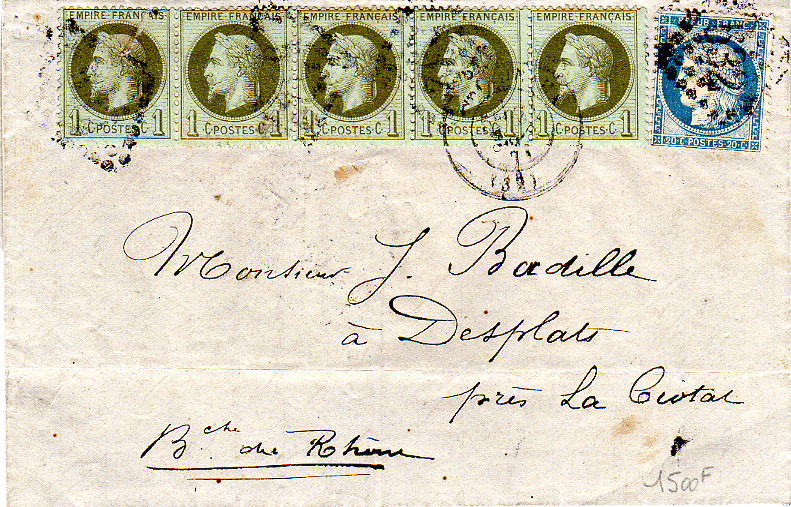 EMPIRE FRANÇAIS EMPIRE FRANÇAIS EMPIRE FRANÇAIS EMPIRE FRANÇAIS EMPIRE FRANÇAIS
1 C·POSTES·C 1 1 C·POSTES·C 1 1 C·POSTES·C 1 1 C·POSTES·C 1 1 C·POSTES·C 1
20·C·POSTES·20·C
Monsieur J. Badille
à Desplats
près La Ciotat
Bche du Rhône
1500F